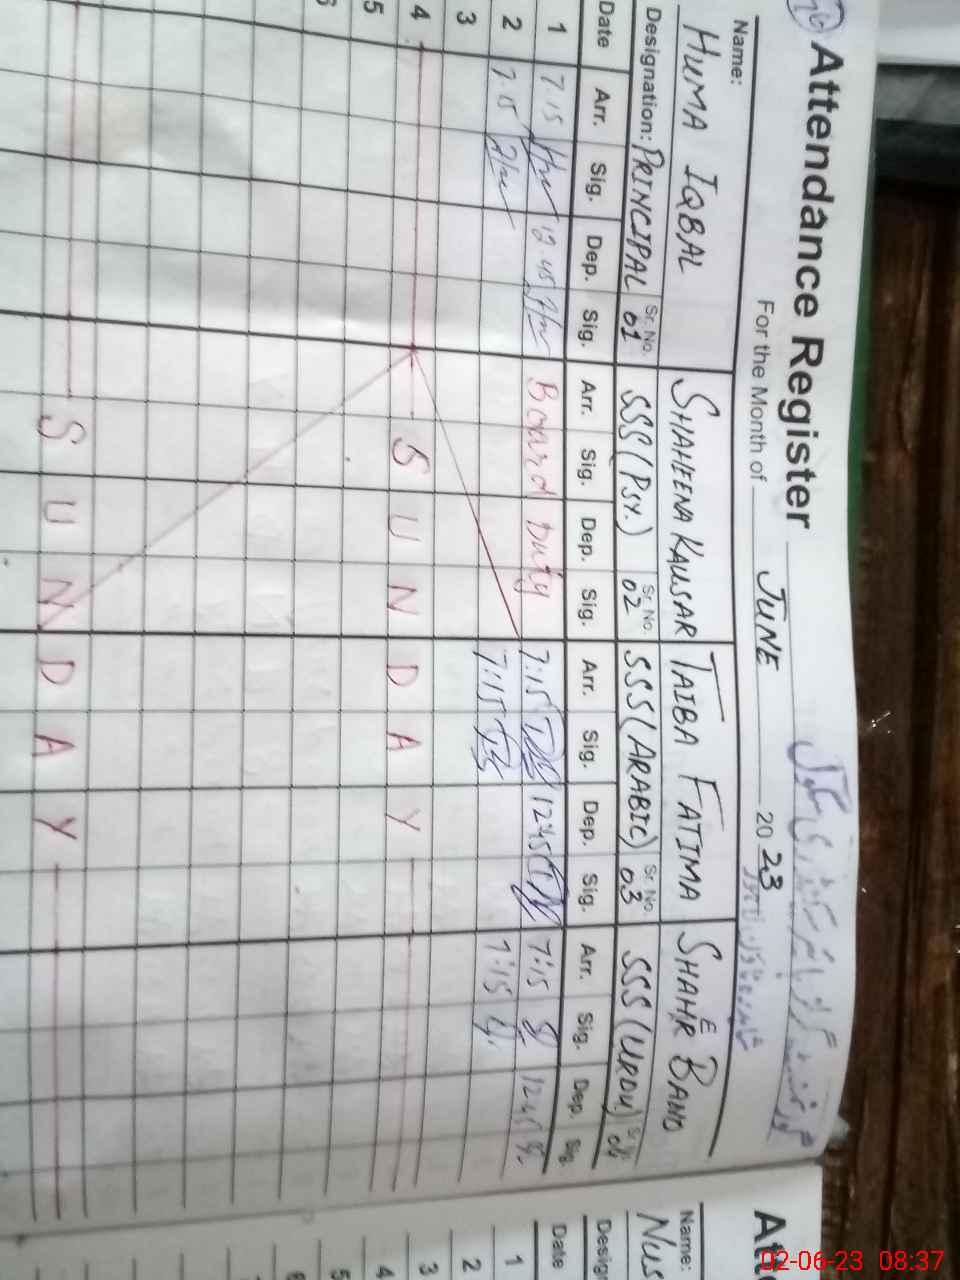 Attendance Register
For the Month of JUNE 2023
Name: HUMA IQBAL SHAHEENA KAUSAR TAIBA FATIMA SHAHRE BANO
Designation: PRINCIPAL Sr. No. 01 SSS (PSY.) Sr. No. 02 SSS (ARABIC) Sr. No. 03 SSS (URDU) Sr. No. 04
Date Arr. Sig. Dep. Sig. Arr. Sig. Dep. Sig. Arr. Sig. Dep. Sig. Arr. Sig. Dep. Sig.
1 7:15 12:45 Board Duty 7:15 12:45 7:15 12:45
2 7:15 7:15 7:15
3
4 SUNDAY
5
6
SUNDAY
Att
Name: Nus
Desig
Date
1
2
3
4
5
6
02-06-23 08:37